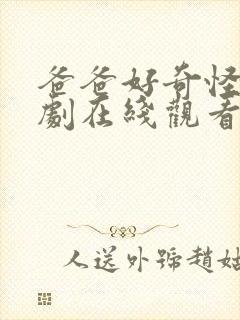 爸爸好奇怪
劇在綫觀看
人送外號趙姑